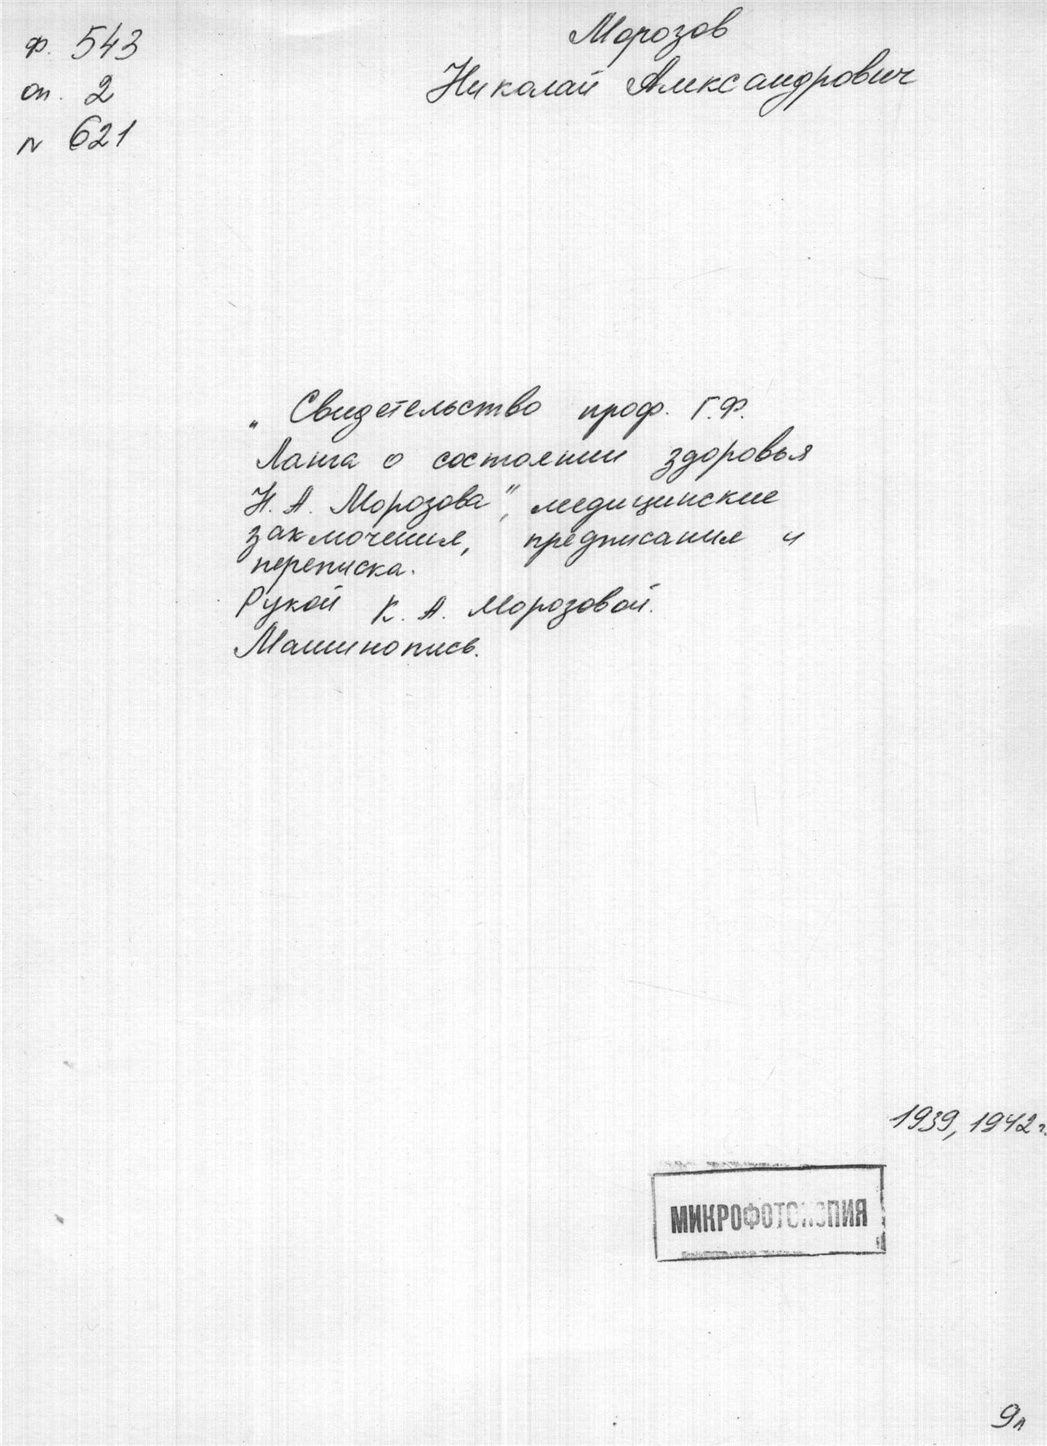 ф. 543
оп. 2
N 621
Морозов
Николай Александрович
„Свидетельство проф. Г.Ф.
Ланга о состоянии здоровья
Н. А. Морозова", медицинские
заключения, предписания и
переписка.
Рукой К. А. Морозовой.
Машинопись.
1939, 1942 г.
МИКРОФОТОКОПИЯ
9л